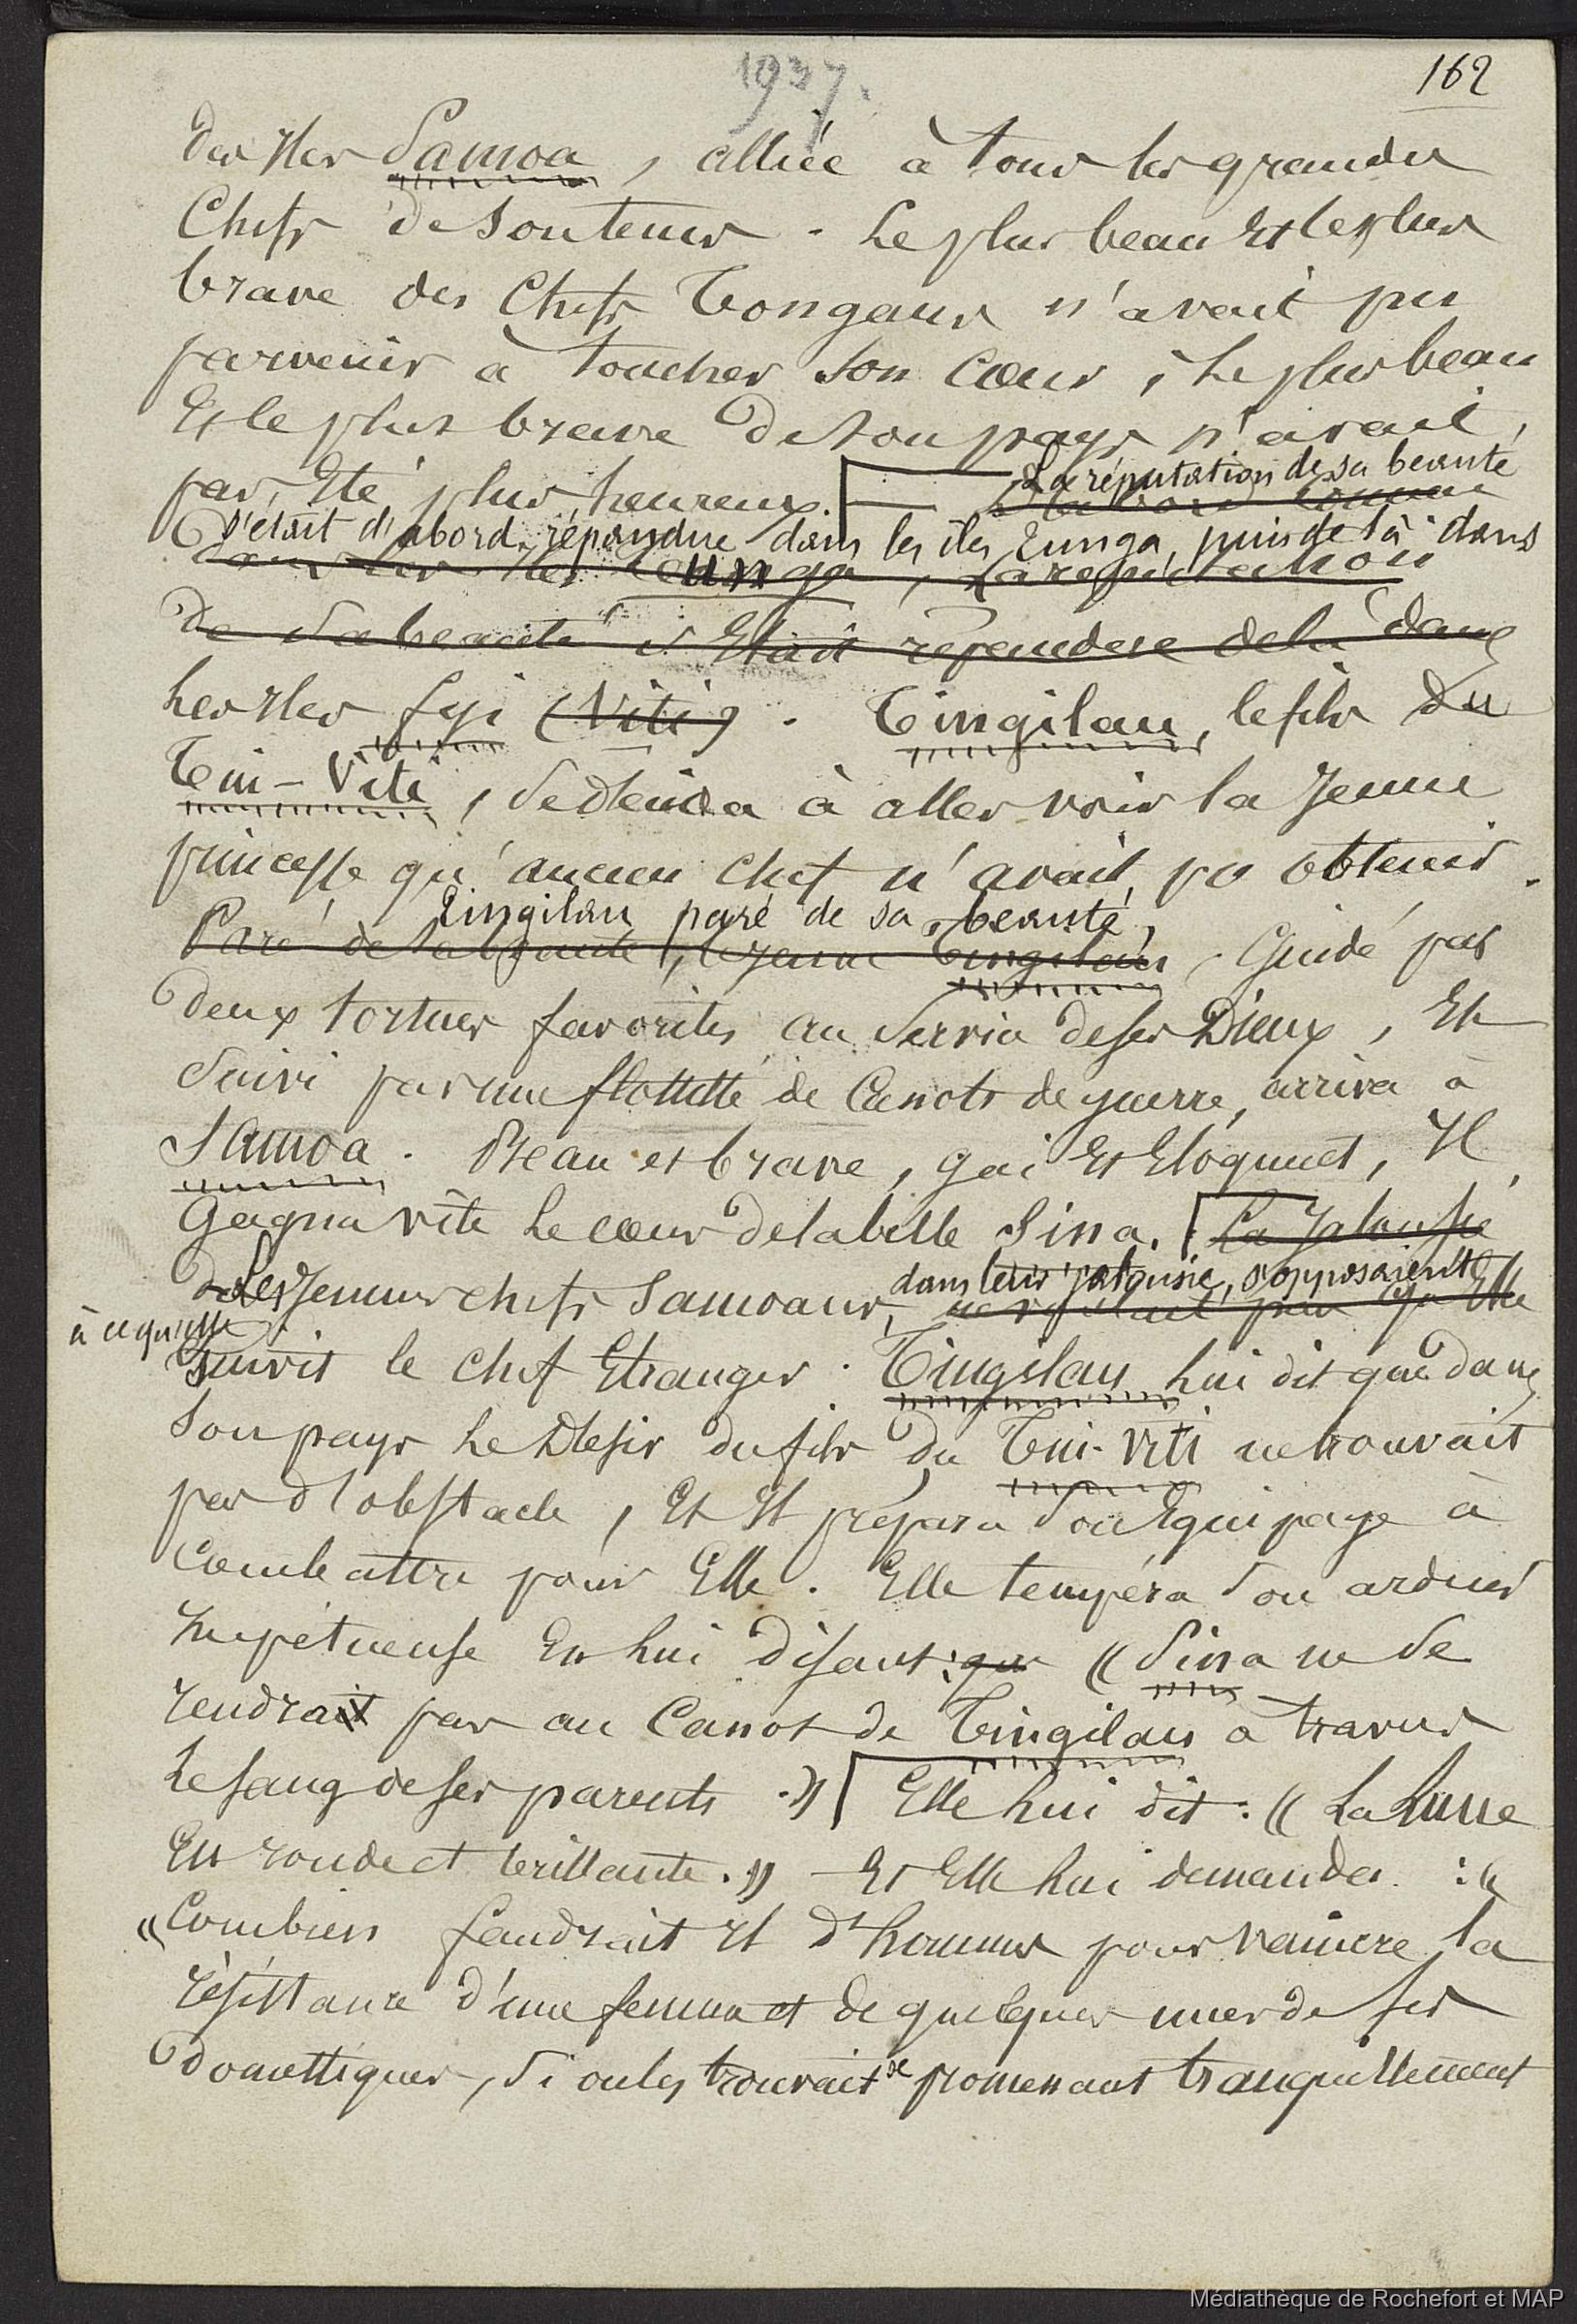 1937.
162
des Iles Samoa, alliée à tous les grandes
Chefs de son temps. Le plus beau Et le plus
brave des Chefs Tongans n'avait pu
parvenir à toucher son Cœur, Le plus beau
Et le plus brave de son pays n'avait,
pas, Eté plus heureux. La réputation de sa beauté
s'était d'abord répandue dans les îles Tunga, puis de là dans
la réputation
de sa beauté s'Etait répandue de là dans
Les Iles Fiji (Viti). Tingilau, le fils du
Tui-Viti, se décida à aller voir la Jeune
princesse qu'aucun chef n'avait pu obtenir.
Tingilau paré de sa beauté,
Paré de sa beauté, le jeune Tingilau, Guidé par
deux tortues favorites au Service de ses Dieux, Et
Suivi par une flottille de Canots de guerre, arriva à
Samoa. Beau et brave, gai Et Eloquent, Il
Gagna vîte Le cœur de la belle Sina. La Jalousie
des Les Jeunes chefs Samoans, dans leur jalousie, s'opposaient
à ce qu'elle
suivit le chef Etranger. Tingilau Lui dit que dans
Son pays Le Désir du fils du Tui-Viti ne trouvait
pas d'obstacle, Et Il prépara son Equipage à
Combattre pour Elle. Elle tempéra Son ardeur
Impétueuse En Lui disant: que « Sina ne se
rendrait pas au Canot de Tingilau à travers
Le sang de ses parents.» Elle Lui dit: « La Lune
Est ronde et brillante.» — Et Elle Lui demanda: «
« Combien faudrait Il d'hommes pour vaincre la
résistance d'une femme et de quelques unes de ses
domestiques, si on les trouvait se promenant tranquillement
Médiathèque de Rochefort et MAP